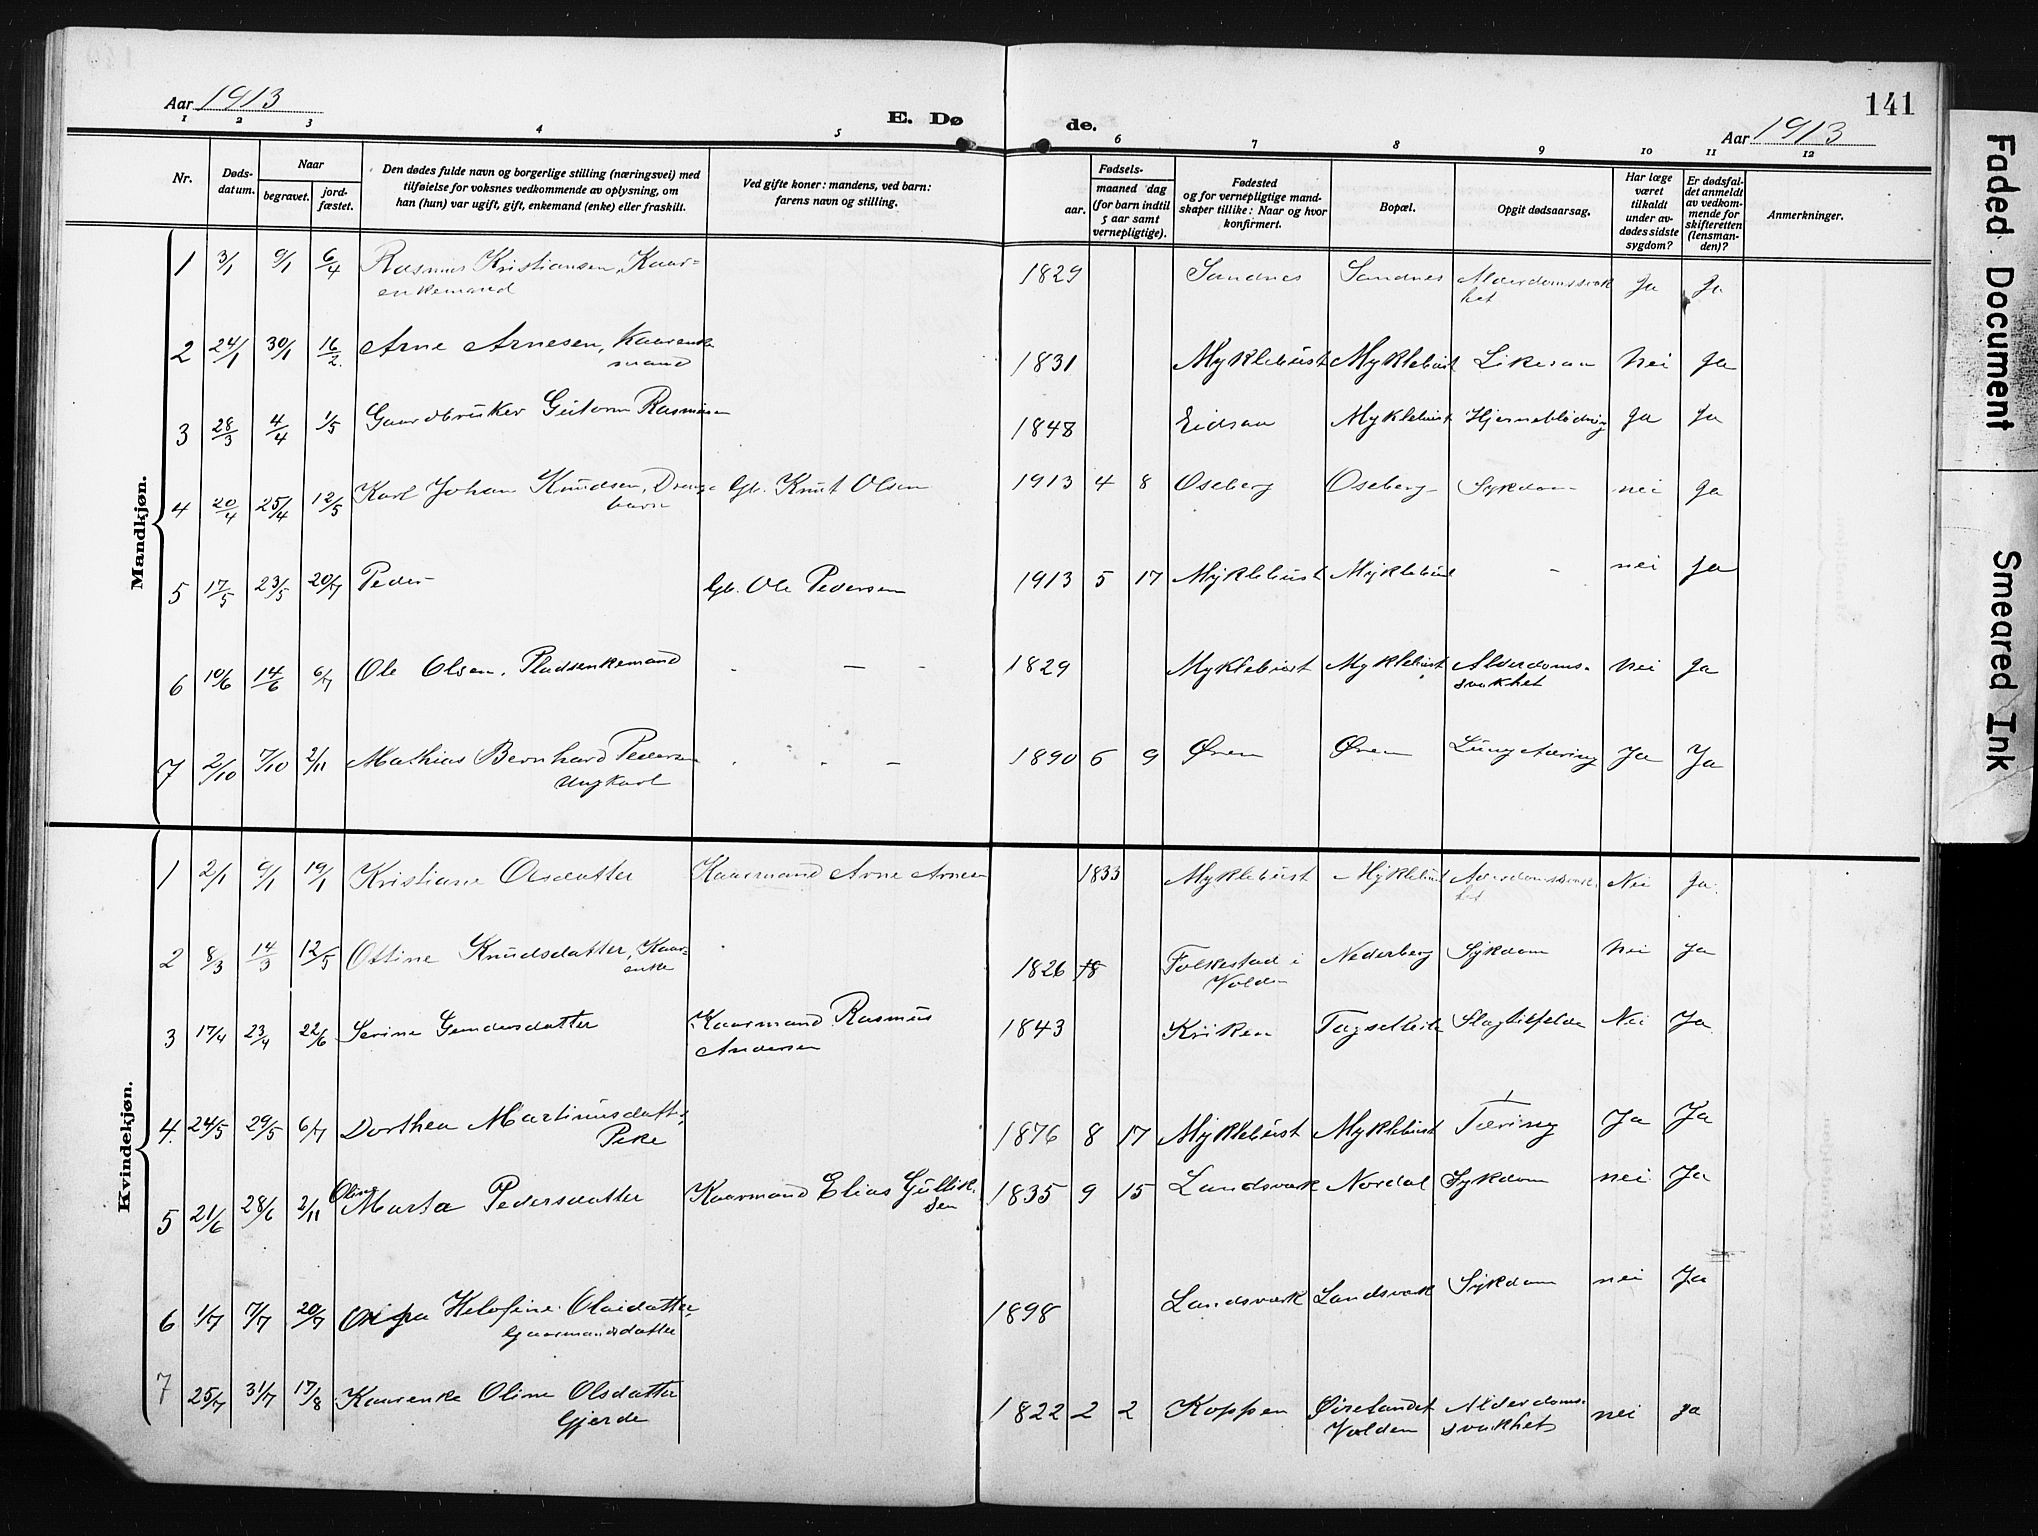 Aar 1913
E. Døde.
141
Aar 1913
1 2 3 4 5 6 7 8 9 10 11 12
Nr.
Døds-
datum.
Naar
begravet.
jord-
fæstet.
Den dødes fulde navn og borgerlige stilling (næringsvei) med
tilføielse for voksnes vedkommende av oplysning, om
han (hun) var ugift, gift, enkemand (enke) eller fraskilt.
Ved gifte koner: mandens, ved barn:
farens navn og stilling.
Fødsels-
aar.
maaned dag
(for barn indtil
5 aar samt
vernepligtige).
Fødested
og for vernepligtige mand-
skaper tillike: Naar og hvor
konfirmert.
Bopæl.
Opgit dødsaarsag.
Har læge
været
tilkaldt
under av-
dødes sidste
sygdom?
Er dødsfal-
det anmeldt
av vedkom-
mende for
skifteretten
(lensman-
den)?
Anmerkninger.
Mandkjøn.
1 3/1 9/1 6/4 Rasmus Kristiansen, Kaar- 1829 Sandnes Sandnes Alderdomssvak Ja Ja
enkemand het
2 24/1 30/1 16/2 Arne Arnesen, Kaarenke 1831 Myklebust Myklebust Nei Ja
mand
3 28/3 4/4 1/5 Gaardbruker Gutorm Rasmusen 1848 Eidsaa Myklebust Hjerneblødning Ja Ja
4 20/4 25/4 12/5 Karl Johan Knudsen, Drenge Gb. Knut Olsen 1913 4 8 Oseberg Oseberg Sykdom nei Ja
barn
5 17/5 23/5 20/7 Peder Gb. Ole Pedersen 1913 5 17 Myklebust Myklebust - nei Ja
6 10/6 14/6 6/7 Ole Olsen. Pladsenkemand - - - 1829 Myklebust Myklebust Alderdoms- Nei Ja
svakhet
7 2/10 7/10 2/11 Mathias Bernhard Pedersen - - - 1890 6 9 Øren Øren Lungetæring Ja Ja
Ungkarl
Kvindekjøn.
1 2/1 9/1 19/1 Kristiane Olsdatter Kaarmand Arne Arnesen 1833 Myklebust Myklebust Alderdomssvak Nei Ja
het
2 8/3 14/3 12/5 Ottine Knudsdatter, Kaar- 1826 18 Folkestad i Nederberg Sykdom Nei Ja
enke Volden
3 17/4 23/4 22/6 Serine Gundersdatter Kaarmand Rasmus 1843 Kriken Nei Ja
Andersen
4. 24/5 29/5 6/7 Dorthea Martinusdatter 1876 8 17 Myklebust Myklebust Tæring Ja Ja
Pike
5 21/6 28/6 2/11 Oline Marta Pedersdatter Kaarmand Elias Gullik- 1835 9 15 Landsvark Nordal Sykdom nei Ja
sen
6 1/7 7/7 20/7 Olaidatter 1898 Landsvark Landsvark Sykdom nei Ja
Gaarmandsdatter
7 25/7 31/7 17/8 Kaarenke Oline Olsdatter 1822 2 2 Koppen Ørelandet Alderdoms- nei Ja
Gjerde Volden svakhet
Faded Document
Smeared Ink